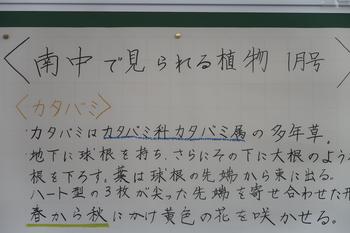 〈南中で見られる植物 1月号〉
〈カタバミ〉
カタバミはカタバミ科カタバミ属の多年草。
地下に球根を持ち、さらにその下に大根のような
根を下ろす。葉は球根の先端から束に出る。
ハート型の3枚が尖った先端を寄せ合わせた形
春から秋にかけ黄色の花を咲かせる。